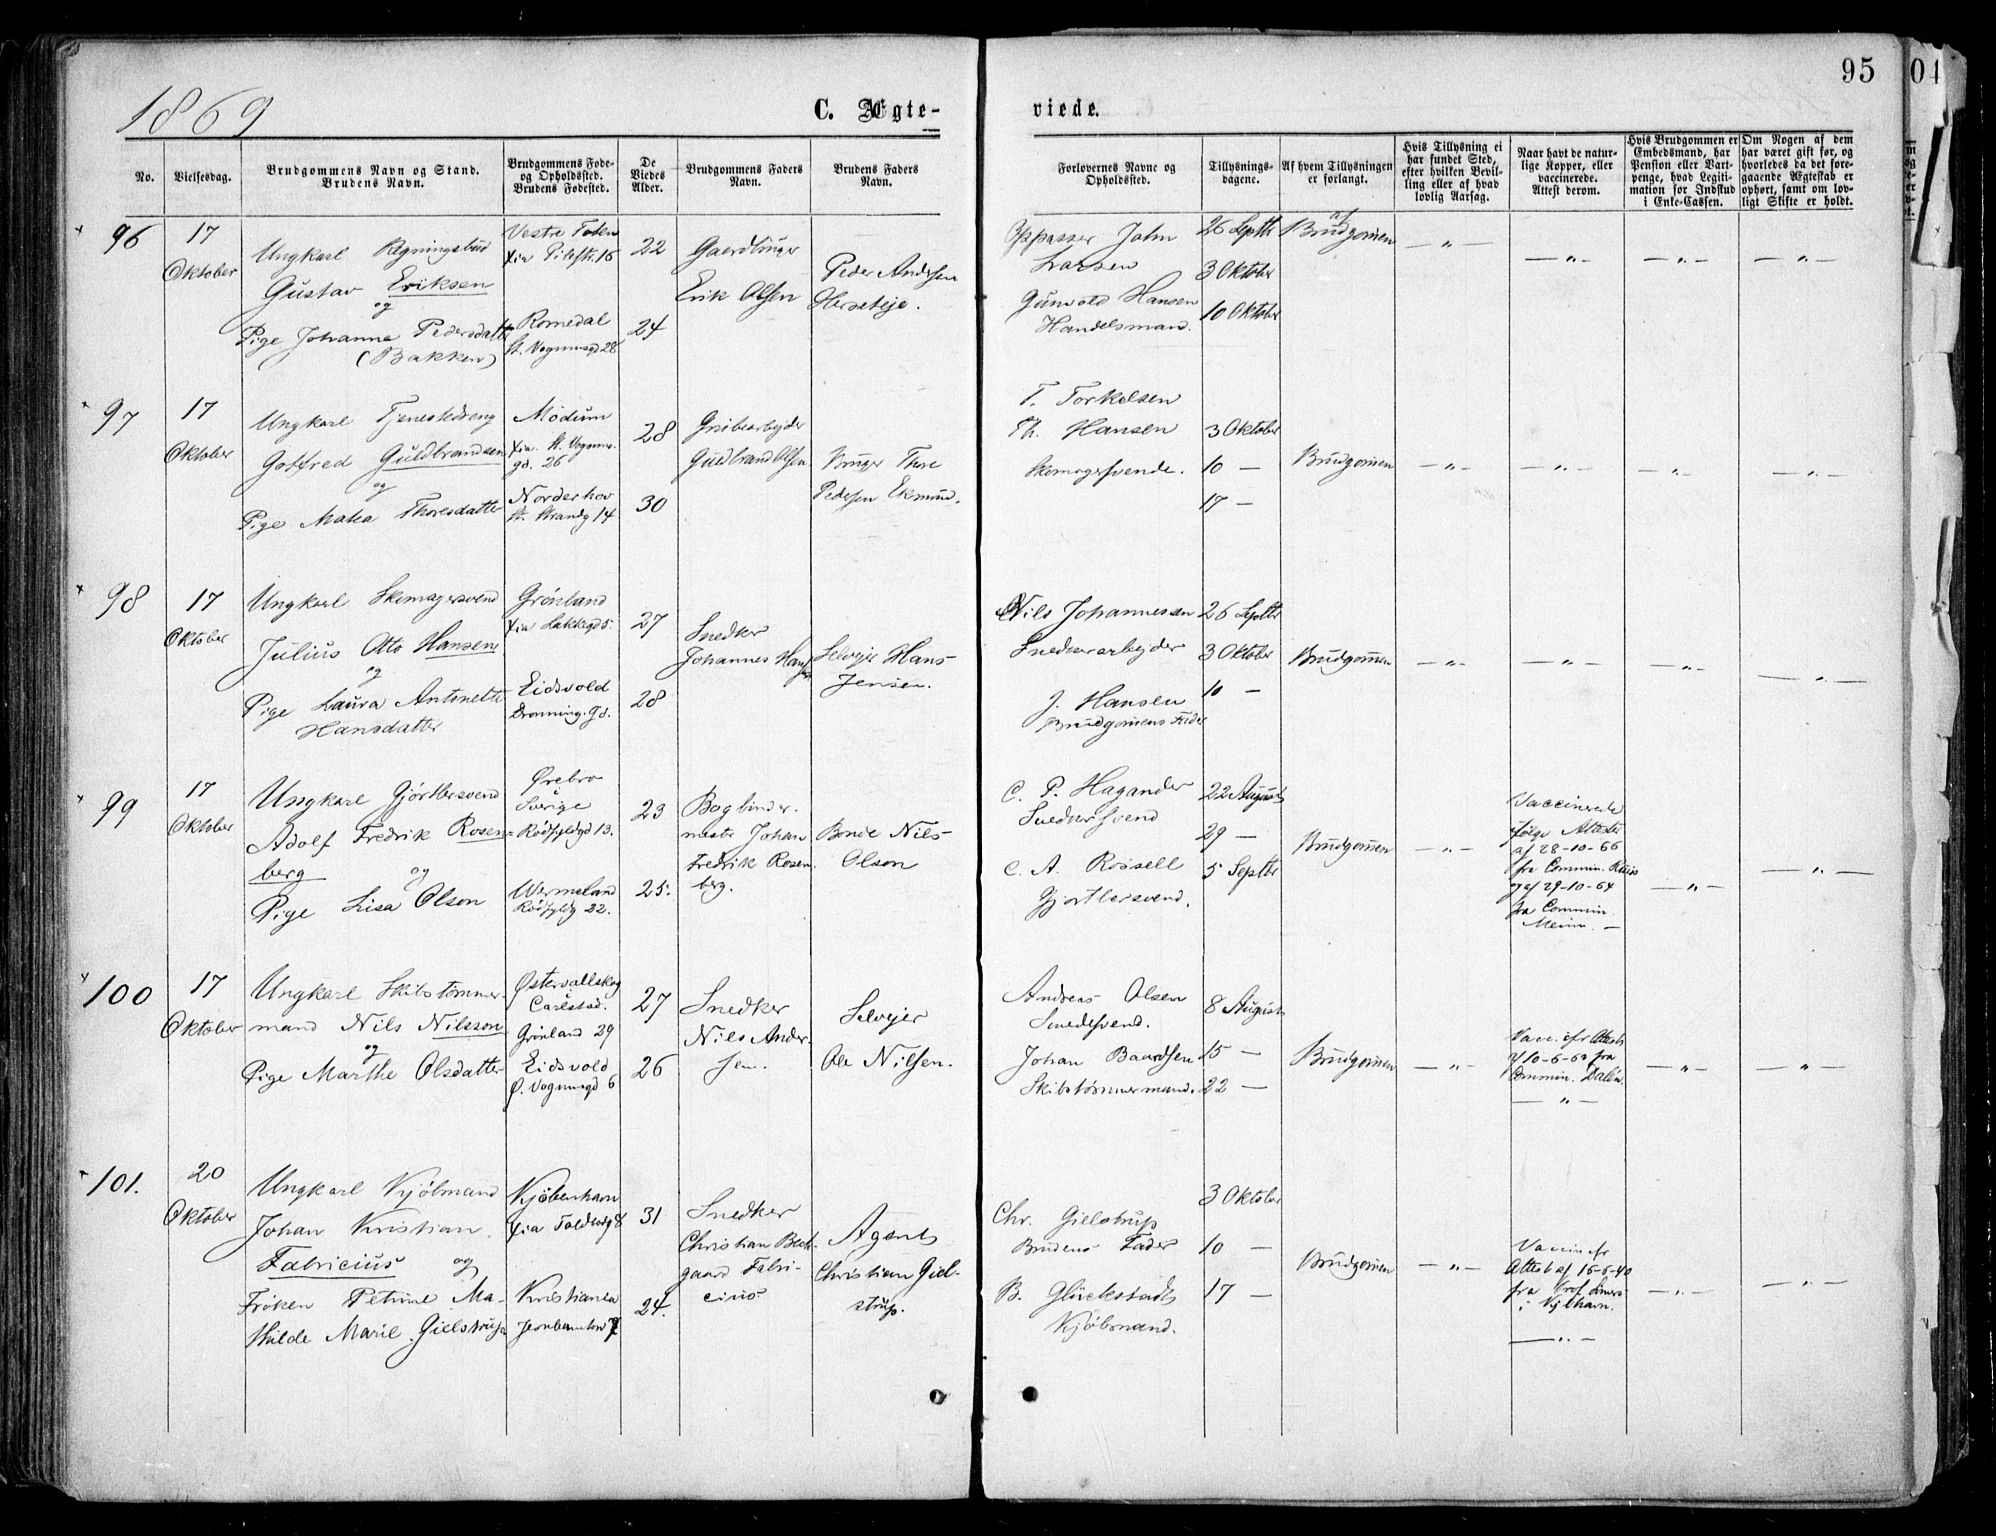 1869
C. Ægte-
viede.
95
04
No.
Vielsesdag.
Brudgommens Navn og Stand.
Brudens Navn.
Brudgommens Føde-
og Opholdssted.
Brudens Fødested.
De
Viedes
Alder.
Brudgommens Faders
Navn.
Brudens Faders
Navn.
Forlovernes Navne og
Opholdssted.
Tillysnings-
dagene.
Af hvem Tillysningen
er forlangt.
Hvis Tillysning ei
har fundet Sted,
efter hvilken Bevil-
ling eller af hvad
lovlig Aarsag.
Naar havt de natur-
lige Kopper, eller
vaccinerede.
Attest derom.
Hvis Brudgommen er
Embedsmand, har
Pension eller Vart-
penge, hvad Legiti-
mation for Indskud
i Enke-Cassen.
Om Nogen af dem
har været gift før, og
hvorledes da det fore-
gaaende Ægteskab er
ophørt, samt om lov-
ligt Skifte er holdt.
96
17
Oktober
Ungkarl Regningsbud
Gustav Eriksen
og
Pige Johanne Pedersdatter
(Bakken)
Vestre Toten
Xia Pilestr. 16
Romedal
St. Vognmgd 28
22
24
Gaardbruger
Erik Olsen
Peder Andersen
Herseteje.
Oppasser John
Larsen
Gunvold Hansen
Handelsmand.
26 Septbr
3 Oktober
10 Oktober
af
Brudgomen
— " —
— " —
— " —
— " —
97
17
Oktober
Ungkarl Tjenestedreng
Gotfred Guldbrandsen
og
Pige Mathea Thoresdatter
Modum
Xia. St. Vognm.
gd. 26
Norderhov
St. Strandg 14
28
30
Grubearbejder
Guldbrand Olsen
Bruger Thore
Pedersen Ekmund.
T. Torkelsen
Th. Hansen
Skomagersvende.
3 Oktober
10 —
17 —
Brudgomen
— " —
— " —
— " —
— " —
98
17
Oktober
Ungkarl Skomagersvend
Julius Otto Hansen
og
Pige Laura Antonette
Hansdatter
Grönland
Xia Lakkegd 5.
Eidsvold
Dronning. Gd.
27
28
Snedker
Johannes Hansen
Selvejer Hans
Jensen.
Nils Johannesen
Snedkerarbejder
J. Hansen
Brudgomens Fader
26 Septbr
3 Oktober
10 —
Brudgomen
— " —
— " —
— " —
— " —
99
17
Oktober
Ungkarl Gjörtlersvend
Adolf Fredrik Rosen-
berg og
Pige Lisa Olson
Ørebro
i
Sverige
Rödfyldgd 13.
Wermeland
Rödfyldg 22.
23
25.
Bogbinder-
mester Johan
Fredrik Rosen
berg.
Bonde Nils
Olson
C. P. Hagander
Snedkersvend
C. A. Rossell
Gjörtlersvend.
22 August
29 —
5 Septbr
Brudgomen
— " —
Vaccinerede
ifølge Attester
af 28-10-66
fra Commin.
og af 29-10-64
fra Commin.
— " —
— " —
100
17
Oktober
Ungkarl Skibstömmer-
mand Nils Nilsson
og
Pige Marthe Olsdatter
Østervallskog
Carlstad.
Grönland 29
Eidsvold
Ø. Vognmgd 6
27
26
Snedker
Nils Ander-
sen.
Selvejer
Ole Nilsen.
Andreas Olsen
Smedesvend.
Johan Baardsen
Skibstømmermand.
8 August
15 —
22 —
Brudgomen
— " —
Vacc. efr Attest
af 10-6-60 fra
Commin. Dalén.
— " —
— " —
— " —
101.
20
Oktober
Ungkarl Kjöbmand
Johan Kristian
Fabricius og
Frøken Petrine Ma-
thilde Marie Gielstrup
Kjöbenhavn
Xia Toldbodg 8
Kristiania
Jernbanetorv 7
31
24.
Snedker
Christian Beck-
gaard Fabri-
cius
Agent
Christian Giel-
strup.
Chr. Gielstrup
Brudens Fader
B. Glückstadt
Kjöbmand.
3 Oktober
10 —
17 —
Brudgomen
— " —
Vaccin efr
Attest af 15-5-40
fra Prof
i Kjbhavn.
— " —
— " —
— " —